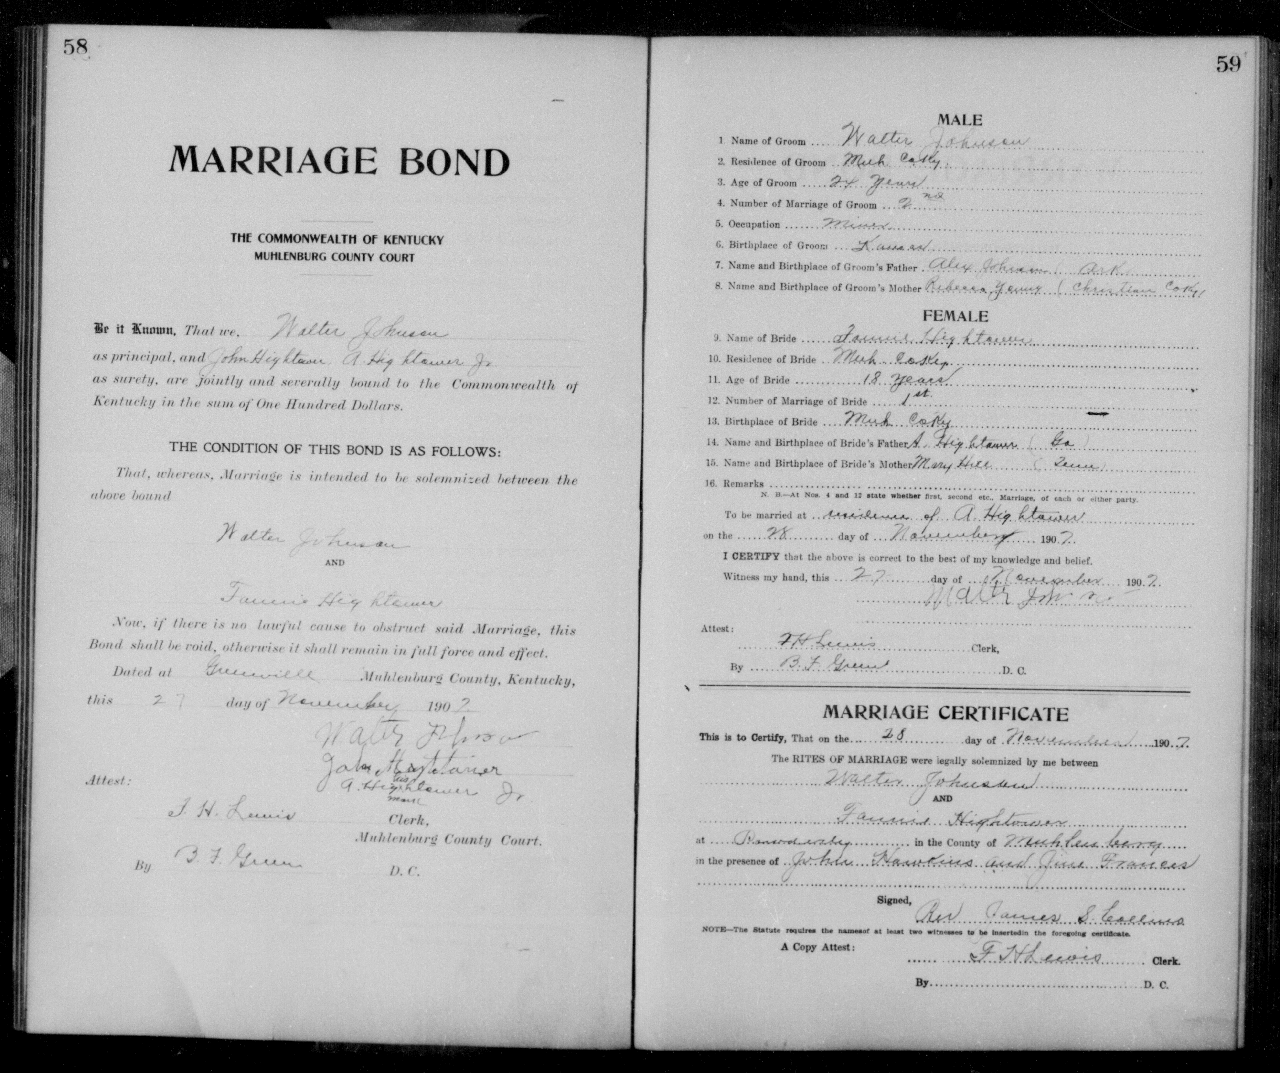 58
MARRIAGE BOND
THE COMMONWEALTH OF KENTUCKY
MUHLENBURG COUNTY COURT
Be it Known, That we, Walter Johnson
as principal, and John Hightower A. Hightower Jr
as surety, are jointly and severally bound to the Commonwealth of
Kentucky in the sum of One Hundred Dollars.
THE CONDITION OF THIS BOND IS AS FOLLOWS:
That, whereas, Marriage is intended to be solemnized between the
above bound
Walter Johnson
AND
Fannie Hightower
Now, if there is no lawful cause to obstruct said Marriage, this
Bond shall be void, otherwise it shall remain in full force and effect.
Dated at Greenville Muhlenburg County, Kentucky,
this 27 day of November 1907
Walter Johnson
John Hightower
his
A. Hightower Jr.
mark
Attest:
T. H. Lewis Clerk,
Muhlenburg County Court.
By B. F. Green D. C.
59
MALE
1 Name of Groom Walter Johnson
2. Residence of Groom Muh Co Ky
3. Age of Groom 24 years
4. Number of Marriage of Groom 2nd
5. Occupation Miner
6. Birthplace of Groom Kansas
7. Name and Birthplace of Groom's Father Alex Johnson (Ark)
8. Name and Birthplace of Groom's Mother Rebecca Young (Christian Co Ky)
FEMALE
9. Name of Bride Fannie Hightower
10. Residence of Bride Muh Co Ky
11. Age of Bride 18 years
12. Number of Marriage of Bride 1st
13. Birthplace of Bride Muh Co Ky
14. Name and Birthplace of Bride's Father A. Hightower (Ga)
15. Name and Birthplace of Bride's Mother Mary Hill (Tenn)
16. Remarks
N. B.—At Nos. 4 and 12 state whether first, second etc., Marriage, of each or either party.
To be married at residence of A. Hightower
on the 28 day of November 1907.
I CERTIFY that the above is correct to the best of my knowledge and belief.
Witness my hand, this 27 day of November 1907.
Walter Johnson
Attest:
T H Lewis Clerk,
By B. F. Green D. C.
MARRIAGE CERTIFICATE
This is to Certify, That on the 28 day of November 1907.
The RITES OF MARRIAGE were legally solemnized by me between
Walter Johnson
AND
Fannie Hightower
at in the County of Muhlenberg
in the presence of John Hawkins and Jim Frances
Signed,
Rev James S. Collins
NOTE—The Statute requires the namesof at least two witnesses to be insertedin the foregoing certificate.
A Copy Attest:
T H Lewis Clerk.
By D. C.